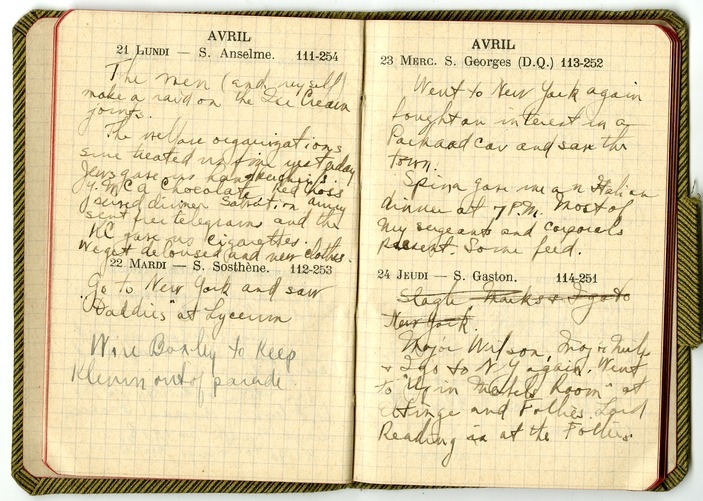 AVRIL
21 LUNDI — S. Anselme. 111-254
The men (and myself)
make a raid on the Ice Cream
joints.
The welfare organizations
sure treated us fine yesterday
Jews gave us handkerchiefs.
Y.M.C.A Chocolate Red Cross
served dinner Salvation Army
sent free telegrams and the
KC gave us cigarettes.
We get deloused and new clothes.
22 MARDI — S. Sosthène. 112-253
Go to New York and saw
"Daddies" at Lyceum
Wire Boxley to Keep
out of parade
AVRIL
23 MERC. S. Georges (D.Q.) 113-252
Went to New York again
bought an interest in a
Packard car and saw the
Town.
Spina gave me an Italian
dinner at 7 P.M. Most of
my sergeants and corporals
present. Some feed.
24 JEUDI — S. Gaston. 114-251
Slagle Marks & I go to
New York.
Major Wilson, Major
& I go to N.Y again. Went
to "Up in Mabels Room" at
Eltinge and Follies. Lord
Reading is at the Follies.